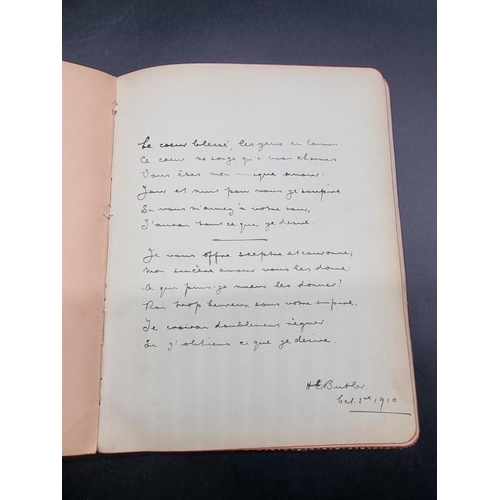 Le coeur blessé, les yeux en larmes
Ce coeur ne songe qu'a vos charmes
Vous êtes mon unique amour;
Jour et nuit pour vous je soupire
Si vous m'aimez à votre tour,
J'aurai tout ce que je desire.
Je vous offre sceptre et couronne;
mon sincère amour vous les donne:
A qui puis-je mieux les donner?
Roi trop heureux sous votre empire,
Je croirai doublement régner
Si j'obtiens ce que je desire.
H E Butler.
Oct. 2nd 1910